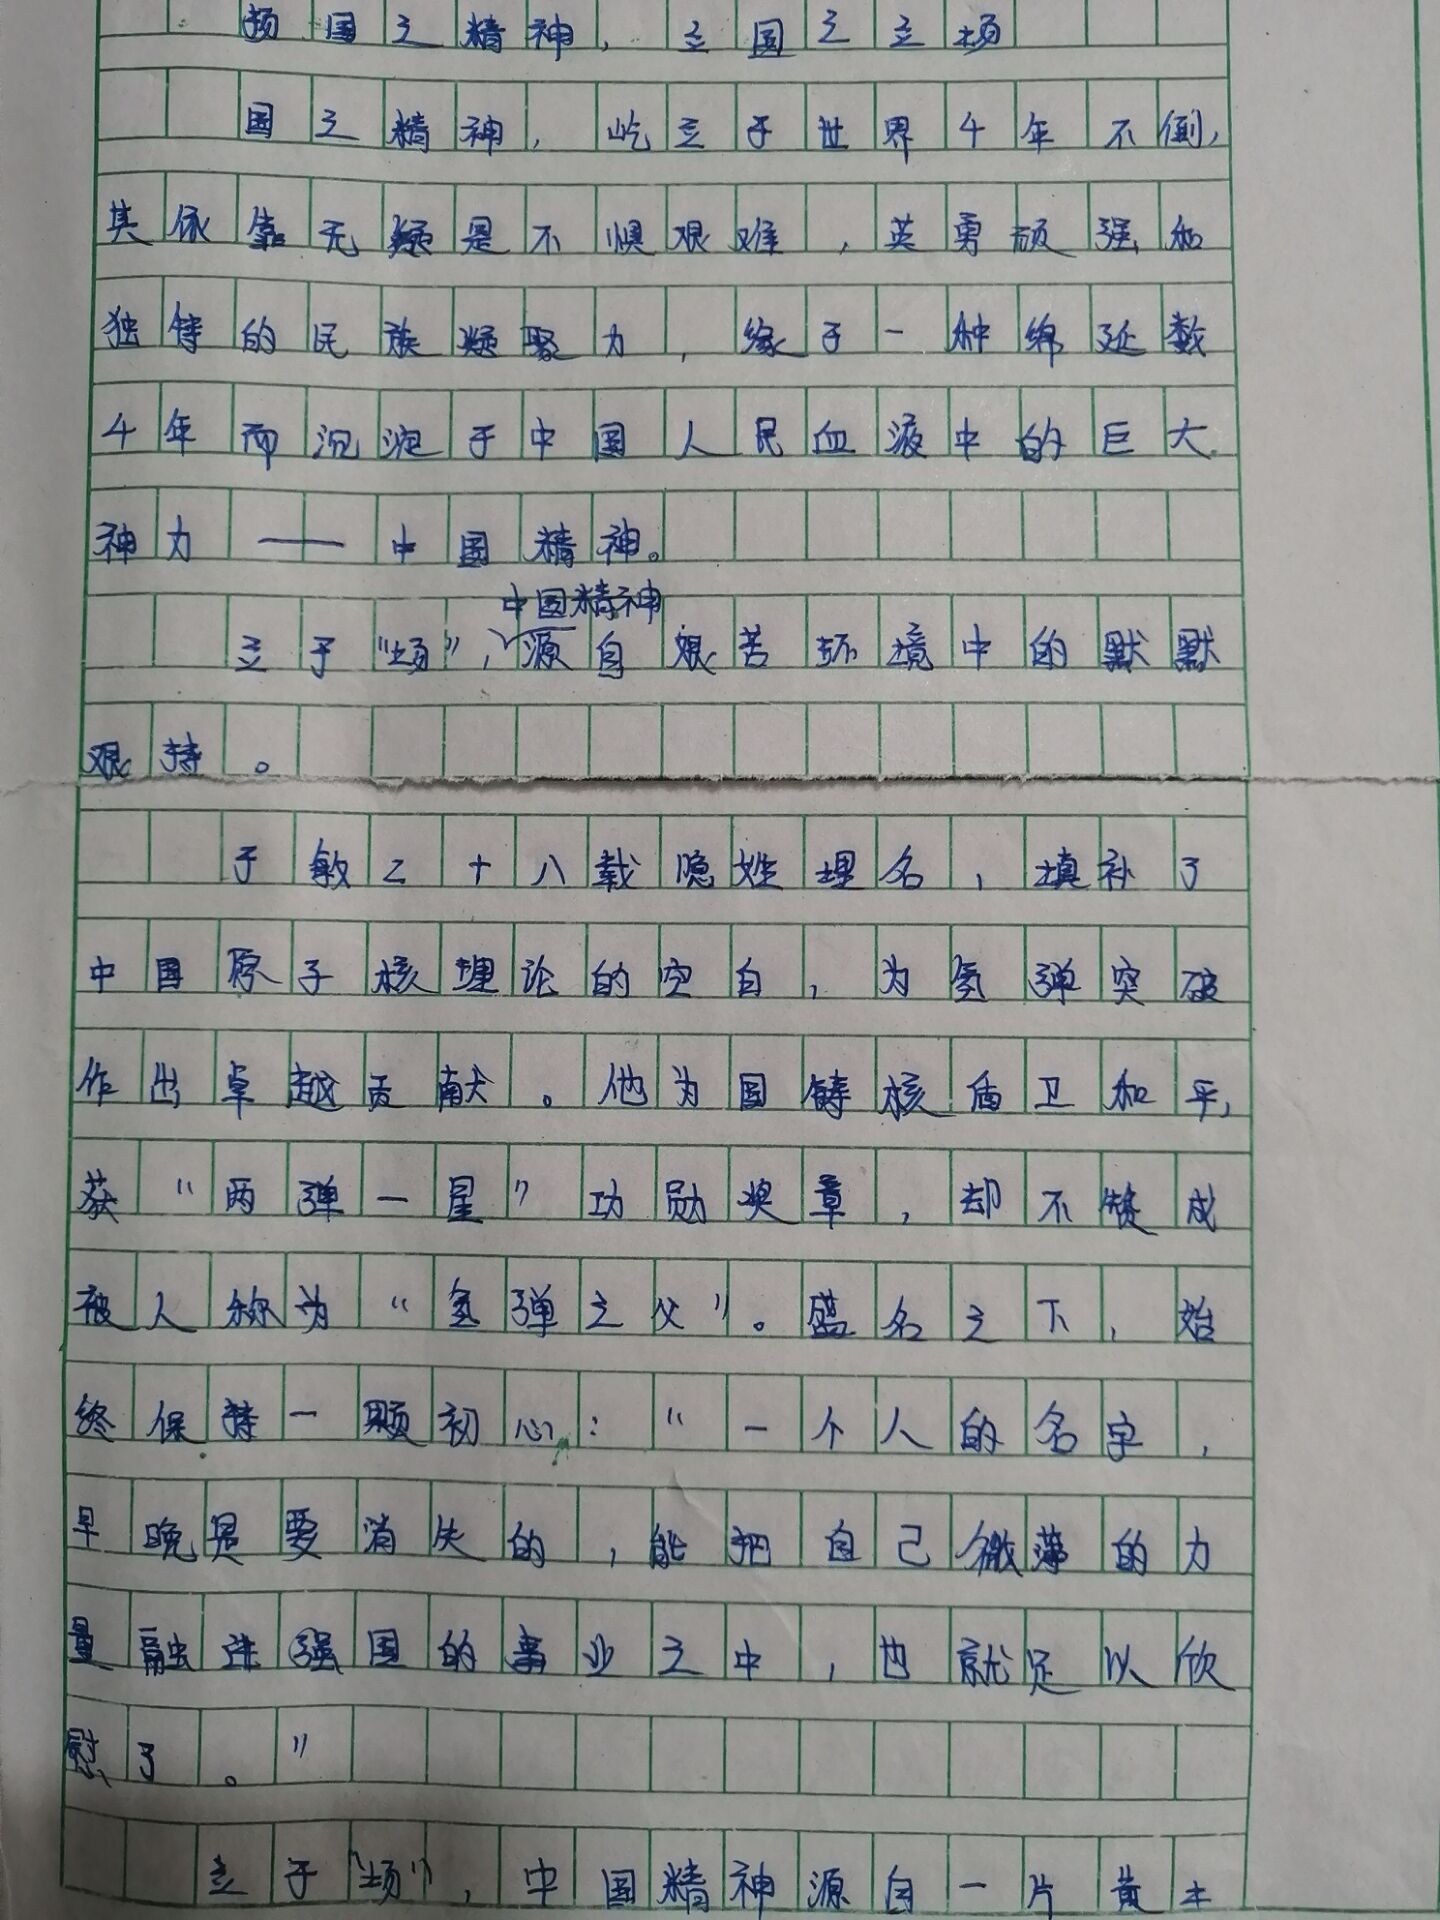 扬国之精神，立国之立场
国之精神，屹立于世界千年不倒，
其依靠无疑是不惧艰难，英勇顽强和
独特的民族凝聚力，缘于一种绵延数
千年而沉淀于中国人民血液中的巨大
神力——中国精神。
中国精神
立于“场”，源自艰苦环境中的默默
艰持。
于敏二十八载隐姓埋名，填补了
中国原子核理论的空白，为氢弹突破
作出卓越贡献。他为国铸核盾卫和平，
获“两弹一星”功勋奖章，却不赞成
被人称为“氢弹之父”。盛名之下，始
终保持一颗初心：“一个人的名字，
早晚是要消失的，能把自己微薄的力
量融进强国的事业之中，也就足以欣
慰了。”
立于“场”，中国精神源自一片黄土